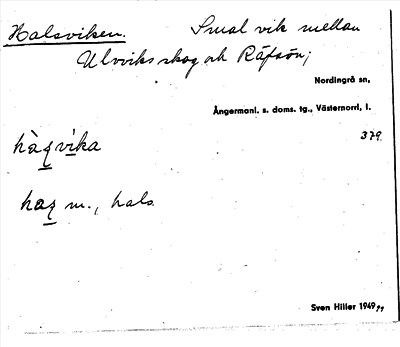 Halsviken. Smal vik mellan
Ulvviks skog och Räfsön;
Nordingrå sn,
Ångermanl. s. doms. tg., Västernorrl. l.
379.
vika
m., hals
Sven Hiller 1949